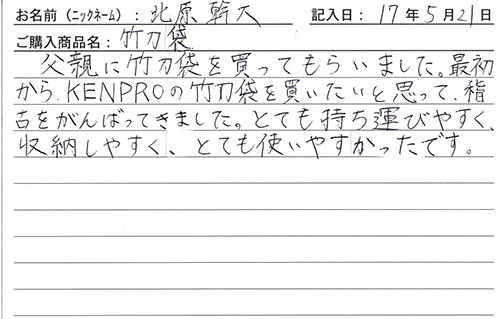 お名前（ニックネーム）：北原幹大 記入日：17年5月21日
ご購入商品名：竹刀袋
父親に竹刀袋を買ってもらいました。最初
から、KENPROの竹刀袋を買いたいと思って、稽
古をがんばってきました。とても持ち運びやすく、
収納しやすく、とても使いやすかったです。